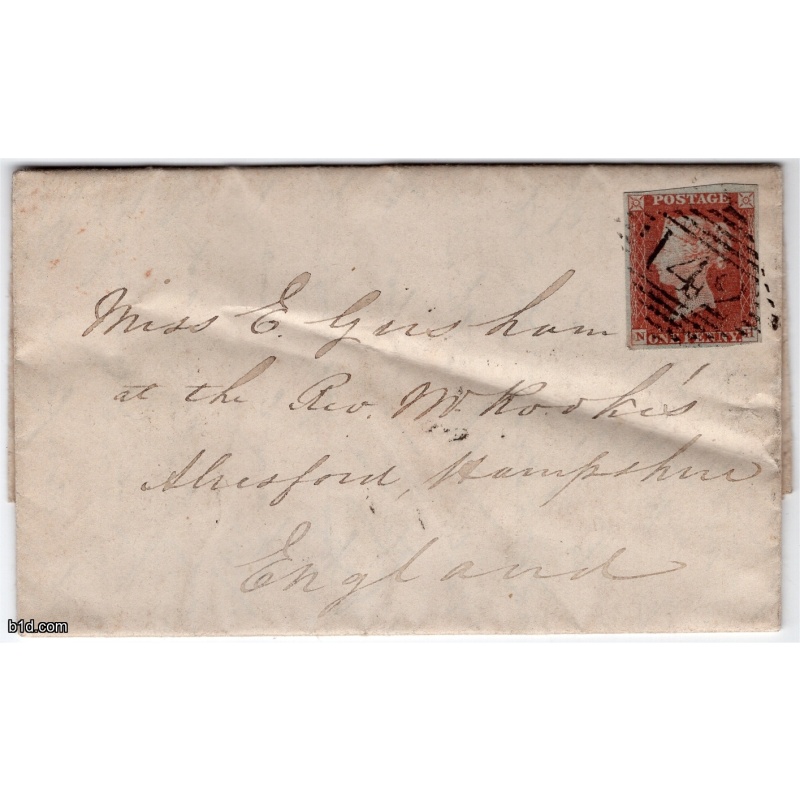 POSTAGE
Miss E. Gresham
at the Rev. Mr. Rooke's
Alresford, Hampshire
England
b1d.com